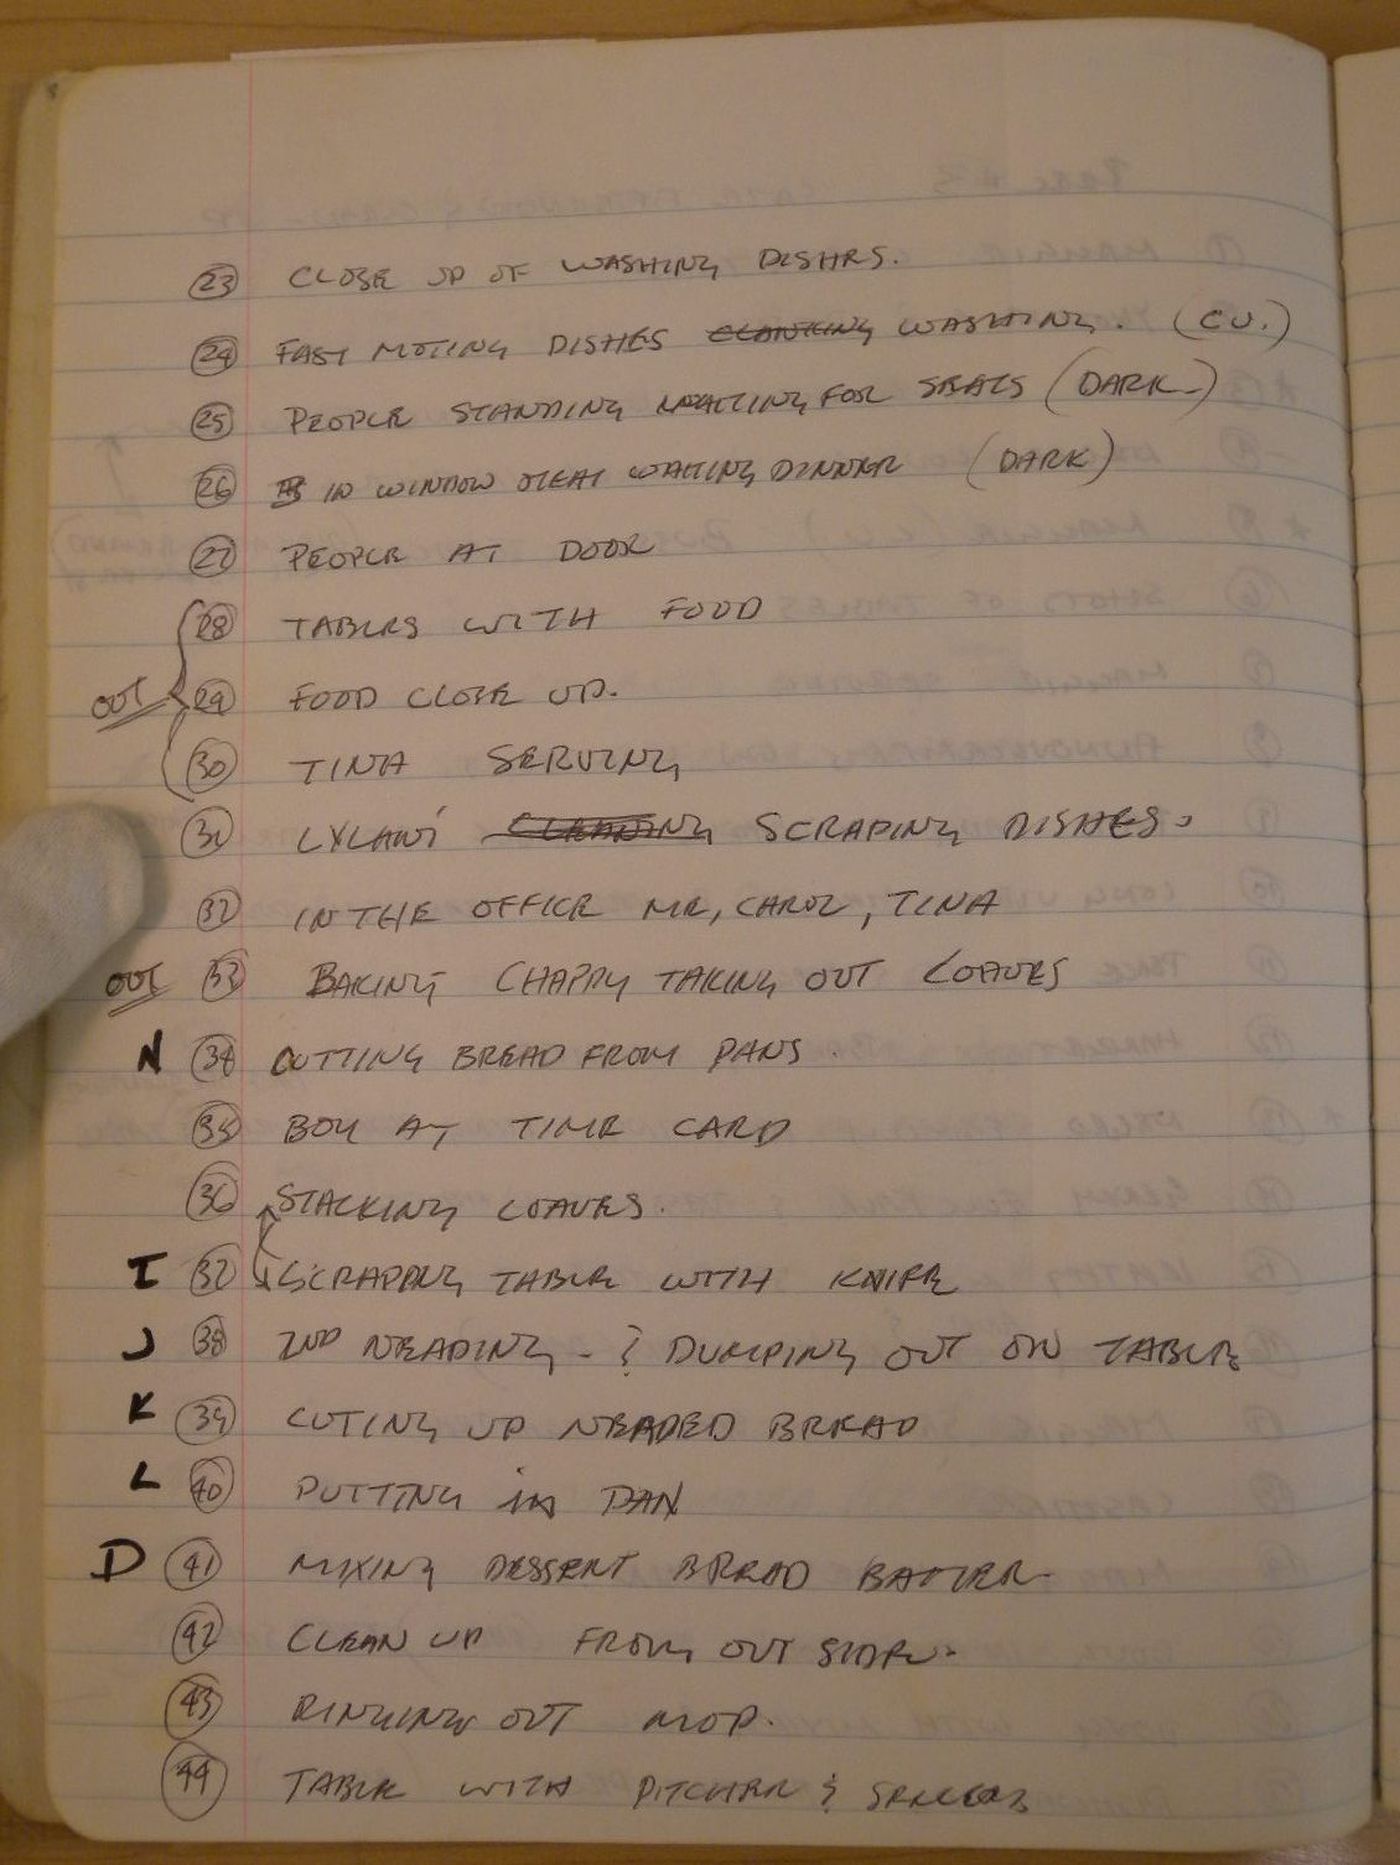 23 CLOSE UP OF WASHING DISHES.
24 FAST MOVING DISHES CLANKING WASHING. (CU.)
25 PEOPLE STANDING WAITING FOR SEATS (DARK)
26 IN WINDOW WAITING DINNER (DARK)
27 PEOPLE AT DOOR
28 TABLES WITH FOOD
OUT 29 FOOD CLOSE UP.
30 TINA SERVING
31 LYLANI CLEANING SCRAPING DISHES.
32 IN THE OFFICE MR, CAROL, TINA
OUT 33 BAKING CHAPPY TAKING OUT LOAVES
N 34 CUTTING BREAD FROM PANS.
35 BOY AT TIME CARD
36 STACKING LOAVES.
I 37 SCRAPPING TABLE WITH KNIFE
J 38 2ND NEADING - & DUMPING OUT ON TABLE
K 39 CUTING UP NEADED BREAD
L 40 PUTTING in PAN
D 41 MIXING DESSERT BREAD BATTER
42 CLEAN UP FROM OUT SIDE.
43 RINGING OUT MOP.
44 TABLE WITH PITCHER &